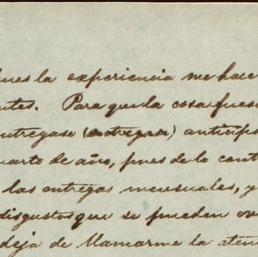 pues la experiencia me hace
ntes. Para que la cosa fuese
ntregase (entregase) anticip
uarto de año, pues de lo cont
las entregas mensuales, y
disgustos que se pueden
deja de llamarme la aten